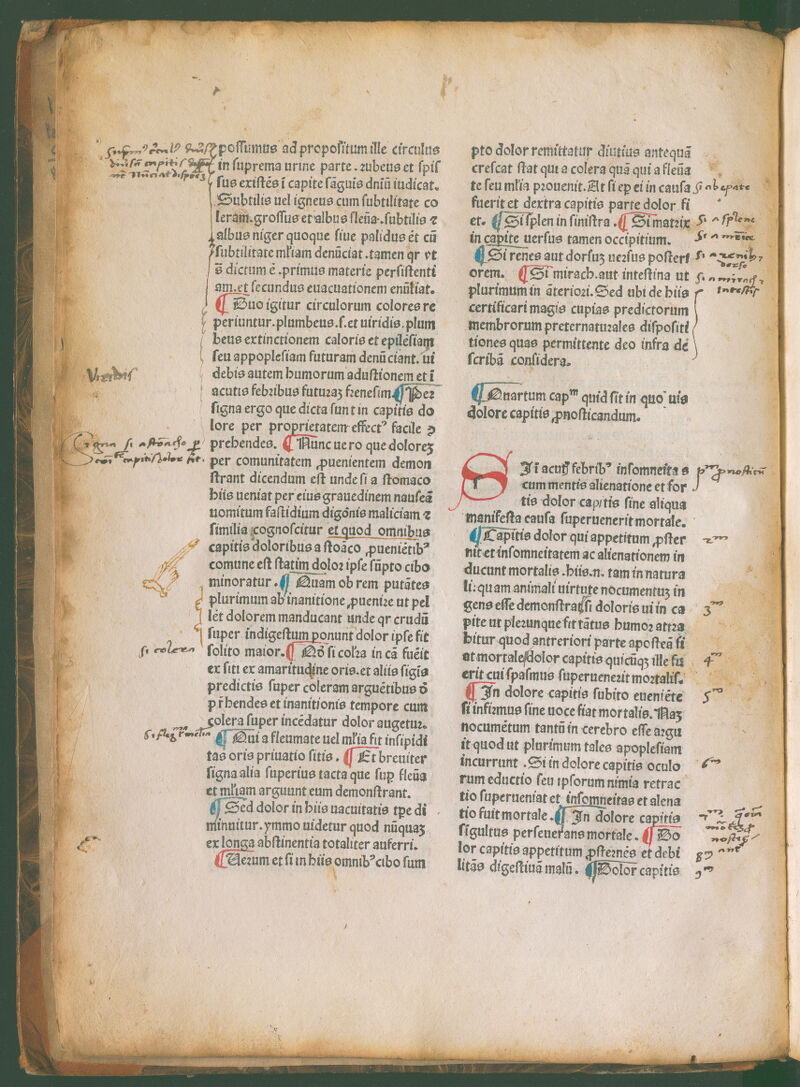 possumus ad propositum ille circulus
in suprema urine parte . rubeus et spis
sus existẽs ĩ capite sãguis dñiũ iudicat.
Subtilis uel igneus cum subtilitate co
leram. grossus et albus flẽa. subtilis ⁊
albus niger quoque siue palidus ẽt cũ
subtilitate mɫiam denũciat . tamen qr vt
dictum ẽ . primus materie persistenti
am. et secundus euacuationem enũtiat.
¶ Duo igitur circulorum colores re
periuntur. plumbeus .s. et uiridis. plum
beus extinctionem caloris et epilẽsiam
seu appoplesiam futuram denũciant. ui
debis autem humorum adustionem et ĩ
acutis febribus futuraꝫ frenesim. ¶ Per
signa ergo que dicta sunt in capitis do
lore per proprietatem effectꝰ facile ꝯ
prehendes. ¶ Nunc uero que doloreꝫ
per comunitatem ꝓuenientem demon
strant dicendum est unde si a stomaco
hiis ueniat per eius grauedinem nauseã
uomitum fastidium digõnis maliciam ⁊
similia cognoscitur et quod omnibus
capitis doloribus a stõaco ꝓueniẽtibꝰ
comune est statim dolor ipse sũpto cibo
minoratur . ¶ Quam ob rem putãtes
plurimum ab inanitione ꝓuenire ut pel
lẽt dolorem manducant unde qr crudũ
super indigestum ponunt dolor ipse fit
solito maior. ¶ Nõ si colra in cã fuẽit
ex siti ex amaritudine oris. et aliis sigĩs
predictis super coleram arguẽtibus
pr̃hendes et inanitionis tempore cum
colera super incẽdatur dolor augetur.
¶ Qui a fleumate uel mɫia fit insipidi
tas oris priuatio sitis . ¶ Et breuiter
signa alia superius tacta que sup flẽũa
et mɫiam arguunt eum demonstrant.
¶ Sed dolor in hiis uacuitatis tꝑe di
minuitur. ymmo uidetur quod nũquaꝫ
ex longa abstinentia totaliter auferri.
¶ Uerum et si in hiis omnibꝰ cibo sum
Viridis
si colera
pto dolor remittatur diutius antequã
crescat stat qui a colera quã qui a fleũa
te seu mɫia prouenit. At si ep ei in causa
fuerit et dextra capitis parte dolor fi
et. ¶ Si splen in sinistra . ¶ Si matrix
in capite uersus tamen occipitium.
¶ Si renes aut dorsuꝫ uersus posteri
orem. ¶ Si mirach. aut intestina ut
plurimum in ãteriori. Sed ubi de hiis
certificari magis cupias predictorum
membrorum preternaturales dispositi
tiones quas permittente deo infra de
scribã considera.
si ab epate
si a splene
¶ Quartum capᵐ quid sit in quo uis
dolore capitis ꝓnosticandum.
SIn acutꝭ febribꝰ insomneitas
cum mentis alienatione et for
tis dolor capitis sine aliqua
manifesta causa superuenerit mortale.
¶ Capitis dolor qui appetitum ꝓster
nit et insomneitatem ac alienationem in
ducunt mortalis . hiis .n. tam in natura
li: quam animali uirtute nocumentuꝫ in
gens esse demonstrat si doloris ui in ca
pite ut plerunque fit tãtus humor atra
hitur quod antreriori parte apostẽa fi
at mortale dolor capitis quicũqꝫ ille fu
erit cui spasmus superuenerit mortalis.
¶ In dolore capitis subito eueniẽte
si infirmus sine uoce fiat mortalis. Naꝫ
nocumẽtum tantũ in cerebro esse argu
it quod ut plurimum tales apoplesiam
incurrunt . Si in dolore capitis oculo
rum eductio seu ipsorum nimia retrac
tio superueniat et insomneitas et aliena
tio fuit mortale . ¶ In dolore capitis
sigultus perseuerans mortale . ¶ Do
lor capitis appetitum ꝓsternẽs et debi
litãs digestiuã malũ. ¶ Dolor capitis
2ᵐ
3ᵐ
4ᵐ
5ᵐ
6ᵐ